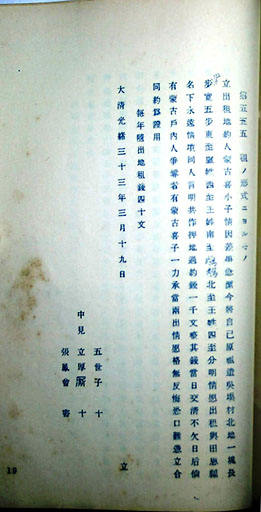 第五五五 租ノ形式ニヨルモノ
立出租地約人蒙古喜小子情因差亟急緊今將自己原租遺吳壩村北地一塊長
步寬五步東至 姓四至王姓南至 北至王姓四至分明情愿出租與田恩
名下永遠 地同人言明共作押地過約錢一千文整其錢當日交清不欠日后倘
有蒙古戶內人爭奪者有蒙古喜子一力承當兩出情愿格無反悔恐口難憑立合
同約爲證用
每年隨出地租錢四十文
大清光緒三十三年三月十九日
立
五世子 十
中見 立厚 十
張鳳會 書
19